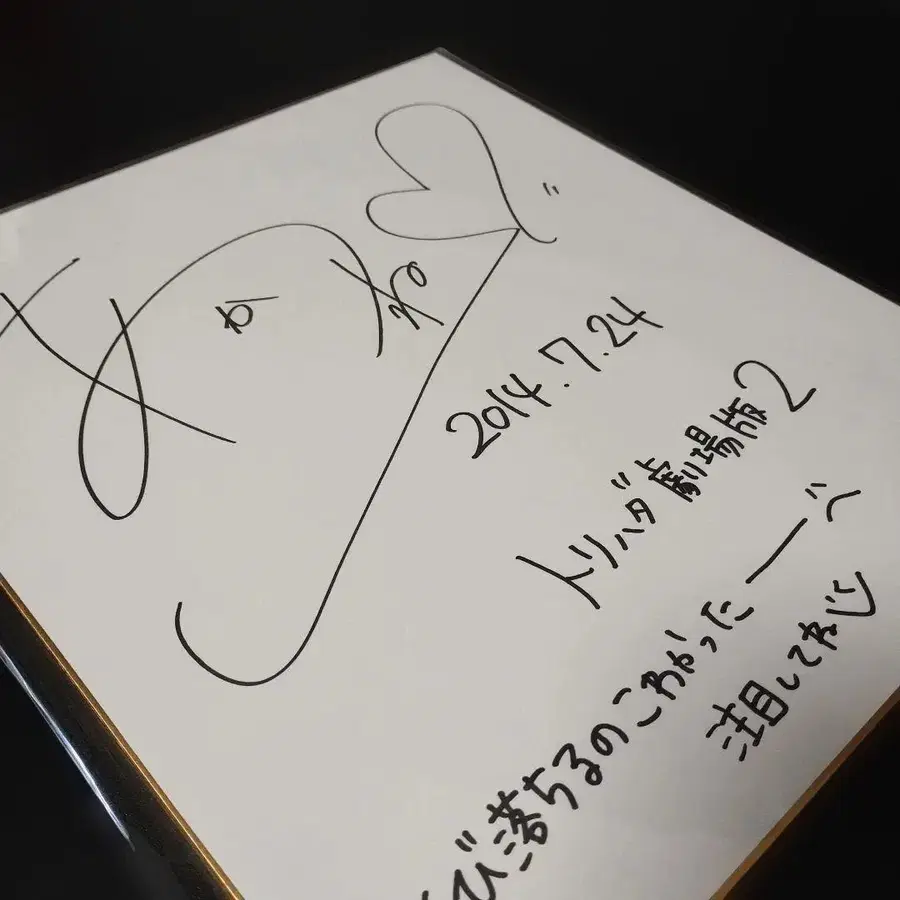 あかね
2014.7.24
トリハダ劇場版2
び落ちるのこわかったー
注目してね